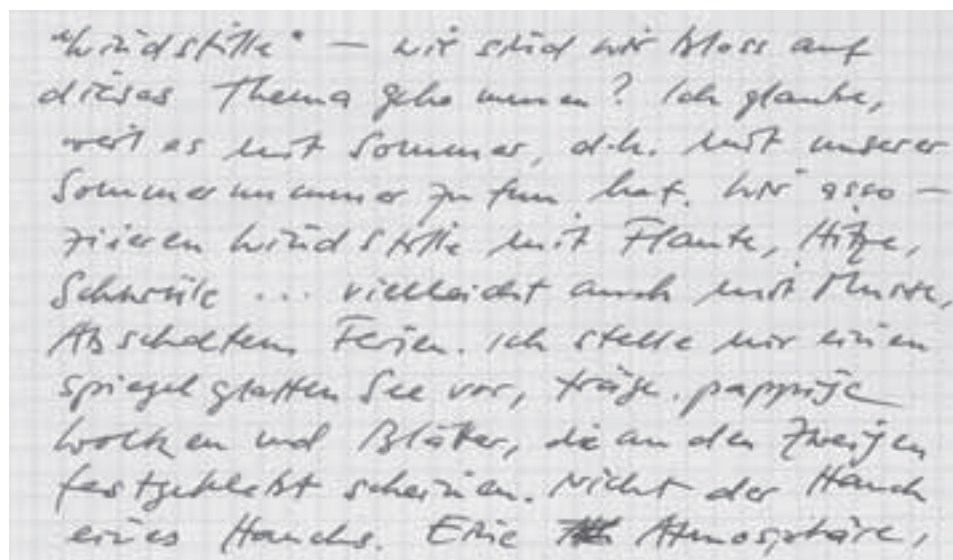 "Windstille" — wie sind wir bloss auf
dieses Thema gekommen? Ich glaube,
weil es mit Sommer, d.h. mit unserer
Sommernummer zu tun hat. Wir asso-
ziieren Windstille mit Flaute, Hitze,
Schwüle ... vielleicht auch mit Musse,
Abschalten, Ferien. Ich stelle mir einen
spiegelglatten See vor, träge, pappige
Wolken und Blätter, die an den Zweigen
festgeklebt scheinen. Nicht der Hauch
eines Hauchs. Eine Atmosphäre,